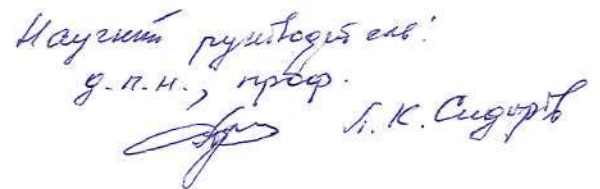 Научный руководитель:
д.п.н., проф.
Л.К. Сидоров